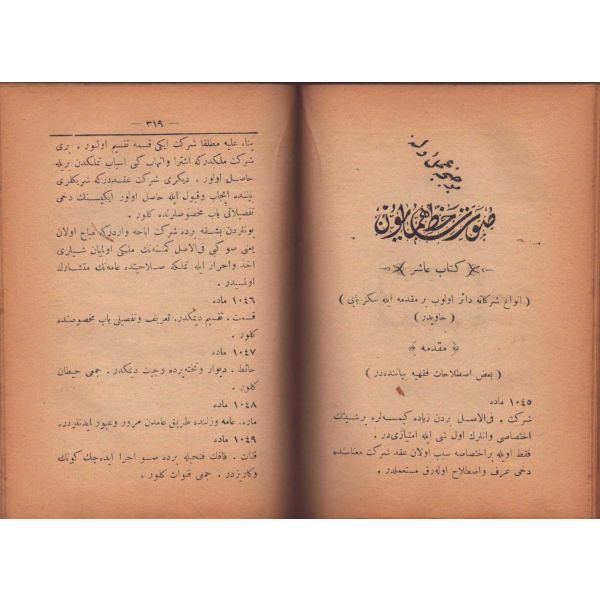 صورت خط همايون
كتاب عاشر
( انواع شركاته دائر اولوب بر مقدمه ايله سكز بابی )
( حاويدر )
﴿ مقدمه ﴾
( بعض اصطلاحات فقهيه بياننده‌در )
١٠٤٥ ماده
شركت . فی‌الاصل بردن زياده كيمسه‌لره برشيئك
اختصاصی وانلرك اول شی ايله امتيازی‌در .
فقط اويله براختصاصه سبب اولان عقد شركت معناسنده
دخی عرف واصطلاح اوله‌رق مستعملدر .
— ٣١٩ —
بناء عليه مطلقا شركت ايكی قسمه تقسيم اولنور . بری
شركت ملكدركه اشترا واتهاب كبی اسباب تملكدن بريله
حاصل اولور . ديكری شركت عقددركه شريكلری
بيننده ايجاب وقبول ايله حاصل اولور ايكيسنك دخی
تفصيلاتی باب مخصوصلرنده كلور .
بونلردن بشقه برده شركت اباحه واردركه مباح اولان
يعنی صو كبی فی‌الاصل كمسه‌نك ملكی اولميان شيلری
اخذ واحراز ايله تملكه صلاحيتده عامه‌نك متشارك
اولمسيدر .
١٠٤٦ ماده
قسمت . تقسيم ديمكدر . تعريف وتفصيلی باب مخصوصنده
كلور .
١٠٤٧ ماده
حائط . ديوار وتخته‌پرده وچيت ديمكدر . جمعی حيطان
كلور .
١٠٤٨ ماده
ماره . عامه وزننده طريق عامدن مرور وعبور ايدنلردر .
١٠٤٩ ماده
قنات . قافك فتحيله يرده صو اجرا ايده‌جك كونك
وكاريزدر . جمعی قنوات كلور .